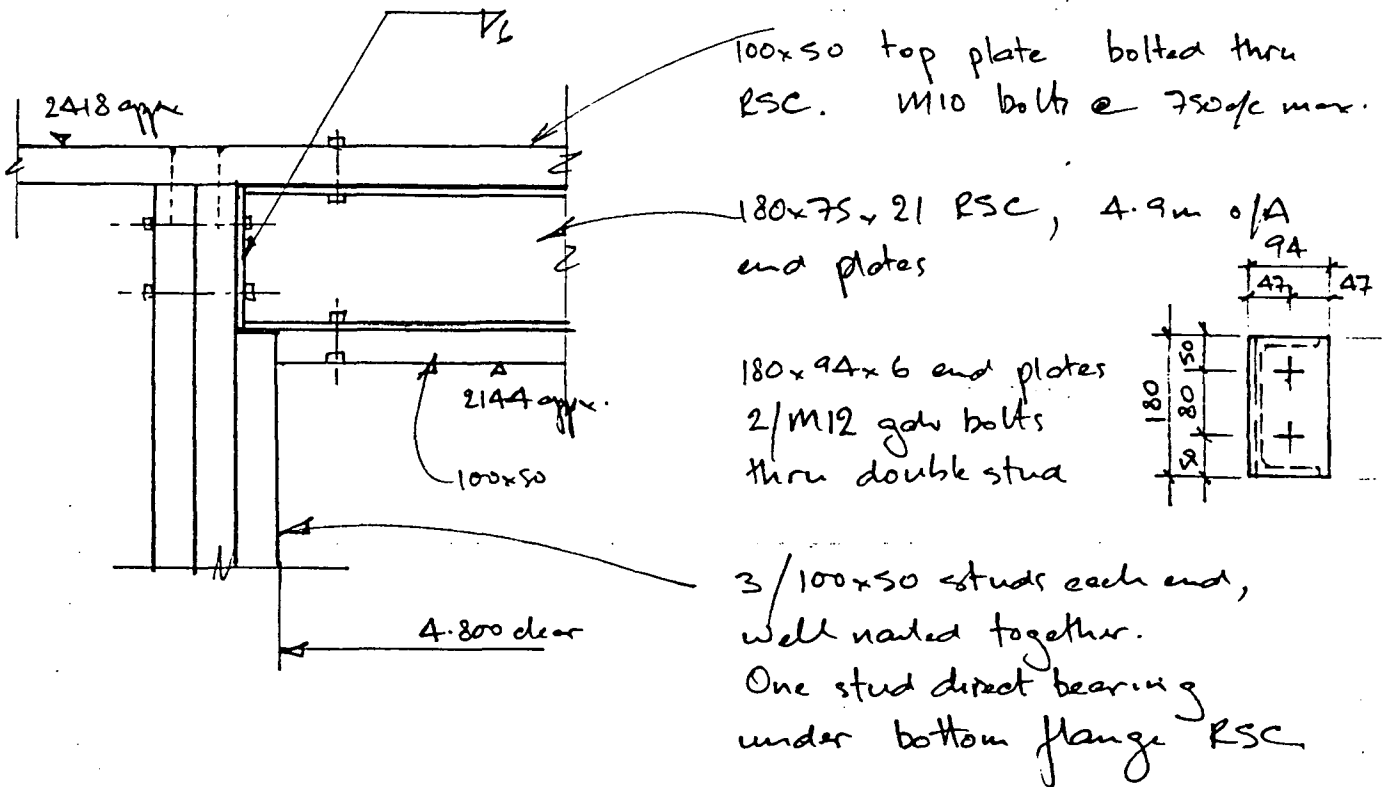 6
100x50 top plate bolted thru
RSC. M10 bolts @ 750 o/c max.
2418 appx
180x75x21 RSC, 4.9m o/A
end plates
94
47 47
180x94x6 end plates
2/M12 galv bolts
thru double stud
180
50
80
50
2144 appx.
100x50
3/100x50 studs each end,
well nailed together.
One stud direct bearing
under bottom flange RSC
4.800 clear